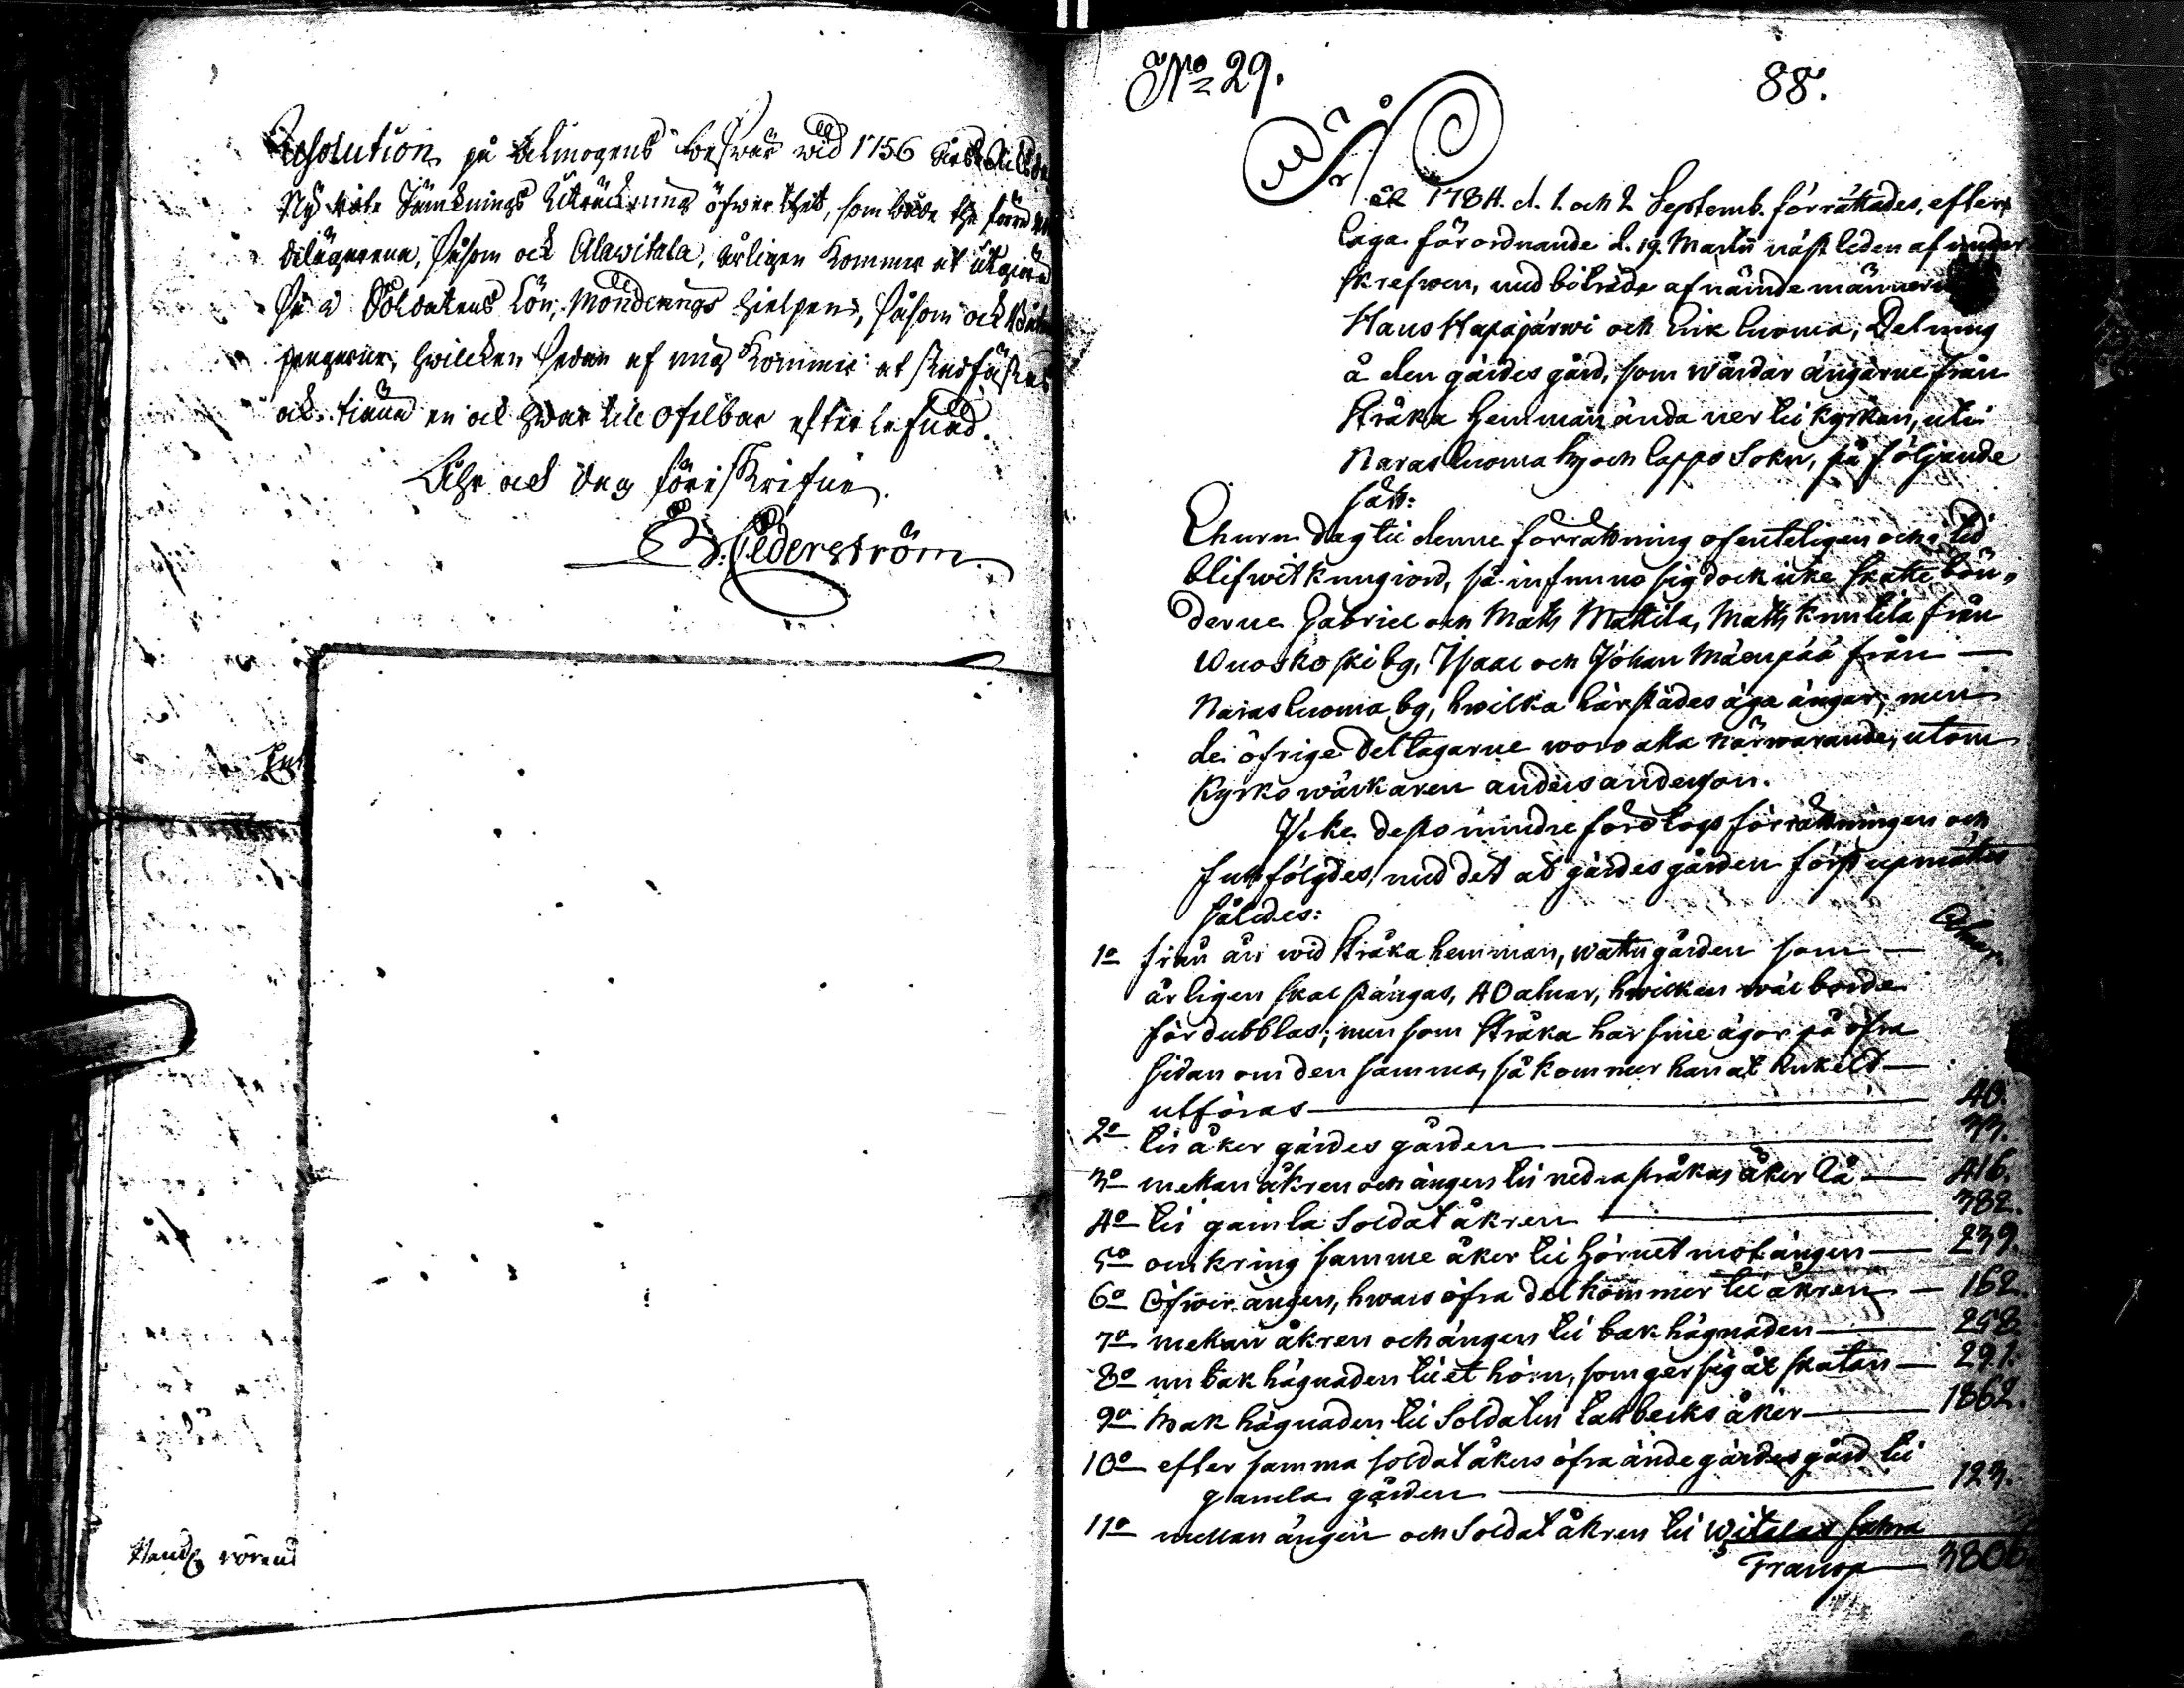 Resolution på Almogens beswär wid 1756
Ny Rote Jämknings Uträckning öfwer thet, som både the förra
Delägarena, såsom ock Alawitala, årligen kommer at utgiöra
På Soldatens Lön, Monderings hielpen, såsom ock
pengarne, hwilcken sedan af mig kommer at stadfästas
ock tiäna en ock hwar till ofelbar efterlefnad.
Åhr ock dag föreskrifne.
Cederström
Hand rörand
No 29.
88.
År 1784. d. 1. och 2 Septemb. förrättades, efter
laga förordnande d. 19. Martii näst leden af under
skrefwen, med biträde af nämdemännerne
Hans Hapajärwi och Erik Luoma, Delning
å den gärdesgård, som wårdar ängarne från
Stråka hemman ända ner til kyrkan, uti
Narasluoma by och Lappo Sokn, på följande
sätt:
Ehuru dag til denne förrättning ofenteligen och i tid
blifwit kungiord, så infunno sig dock icke skatte bön„
derne Gabriel och Matts Mattila, Matts Knutila från
Wuoskoski by, Isaac och Johan Mäenpää från —
Narasluoma by, hwilka härstädes äga ängar; men
de öfrige Deltagarne woro alla närwarande, utom
Kyrkowäcktaren anders anderson.
Icke desto mindre företogs förrättningen och
fullfölgdes, med det at gärdesgården först upmättes
således:
Alnar
1o från ån wid Stråka hemman, wattugården som —
årligen skal stängas, 40 alnar, hwilken wäl borde
fördubblas; men som Stråka har sine ägor på öfra
sidan om den samma, så kommer han at enkelt —
utföras — 40.
2o til åker gärdes gården — 33.
3o mellan åkren och ängen til nedra stråkas åker lå — 416.
4o til gamla Soldat åkren — 382.
5o omkring samme åker til hörnet mot ängen — 239.
6o Öfwer ängen, hwars öfra del kommer til åkren — 162.
7o mellan åkren och ängen til bak hägnaden — 258.
8o nu bak hägnaden til et hörn, som ger sig åt skatan — 291.
9o bak hägnaden til Soldaten Lakbecks åker — 1862.
10o efter samma soldat åkers öfra ände gärdesgård til
gamla gården — 123.
11o mellan ängen och Soldat åkren til Witalax
Transp — 3806.